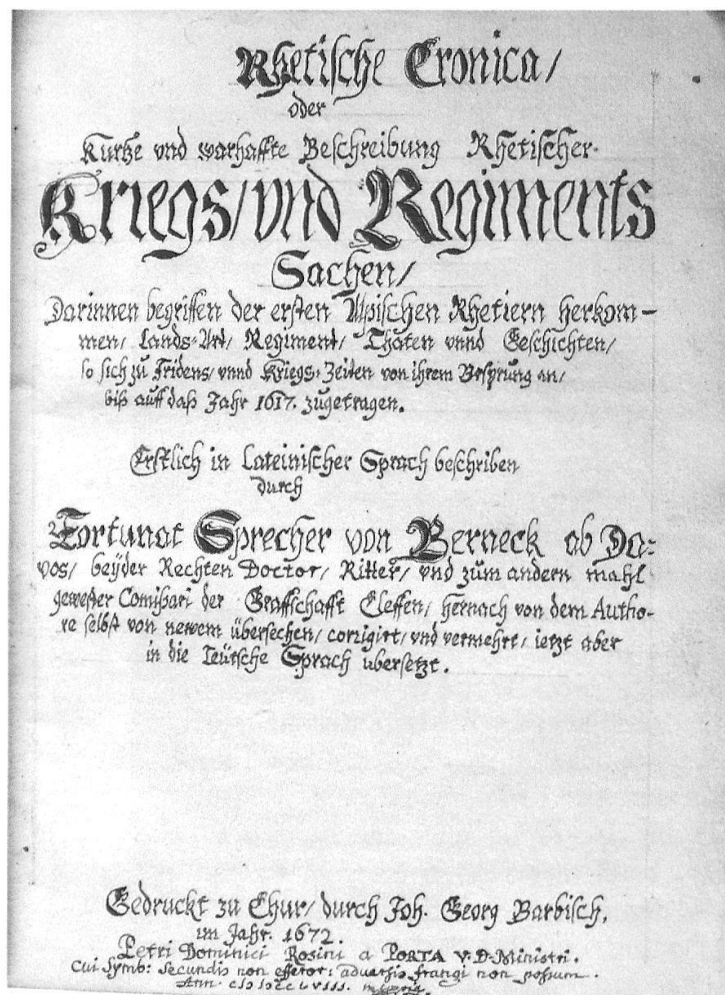 Rhetische Cronica/
oder
Kurtze vnd warhaffte Beschreibung Rhetischer.
Kriegs/ vnd Regiments
Sachen/
Darinnen begriffen der ersten Alpischen Rhetiern herkom-
men/ Lands-Art/ Regiment/ Thaten vnnd Geschichten/
so sich zu Fridens/ vnnd Kriegs-Zeiten von ihrem Vrsprung an/
biß auff daß Jahr 1617. zugetragen.
Erstlich in Lateinischer Sprach beschriben
durch
Fortunat Sprecher von Berneck ab Da-
vos/ beyder Rechten Doctor/ Ritter/ vnd zum andern mahl
gewester Comißari der Graffschafft Cleffen/ hernach von dem Autho-
re selbst von newem übersechen/ corrigirt/ vnd vermehrt/ ietzt aber
in die Teütsche Sprach ubersetzt.
Gedruckt zu Chur/ durch Joh. Georg Barbisch.
im Jahr. 1672.
Petri Dominici Rosini a PORTA V. D. Ministri.
Cui Symb: Secundis non efferor: adversis frangi non possum.
Ann.